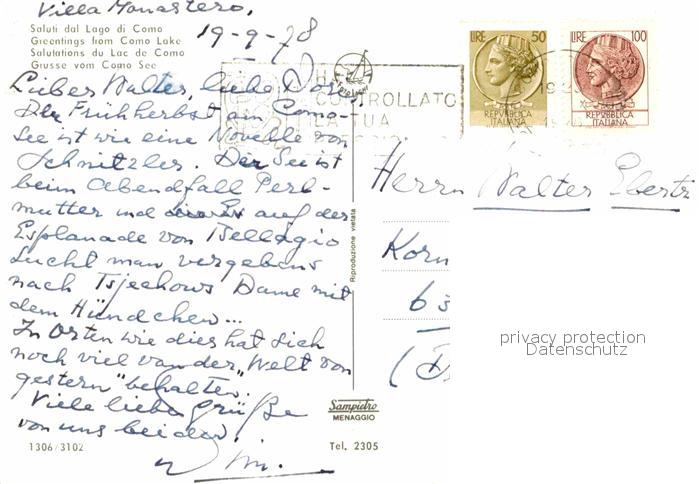 Villa Monastero,
19-9-78
Saluti dal Lago di Como
Greentings from Como Lake
Salutations du Lac de Como
Grusse vom Como See
Lieber Walter, liebe
Der Frühherbst am Como-
See ist wie eine Novelle von
Schnitzler. Der See ist
beim Abendfall Perl-
mutter und auf der
Esplanade von Bellagio
sucht man vergebens
nach Tsjechows Dame mit
dem Hündchen...
In Orten wie dies hat sich
noch viel van der „Welt von
gestern" behalten.
Viele liebe Grüße
von uns beiden,
1306/3102
Riproduzione vietata
Sampietro
MENAGGIO
Tel. 2305
CONTROLLATO
TUA
LIRE 50
REPVBBLICA
ITALIANA
LIRE 100
REPVBBLICA
ITALIANA
Herrn Walter Ebertz
Korn
63
(D
privacy protection
Datenschutz